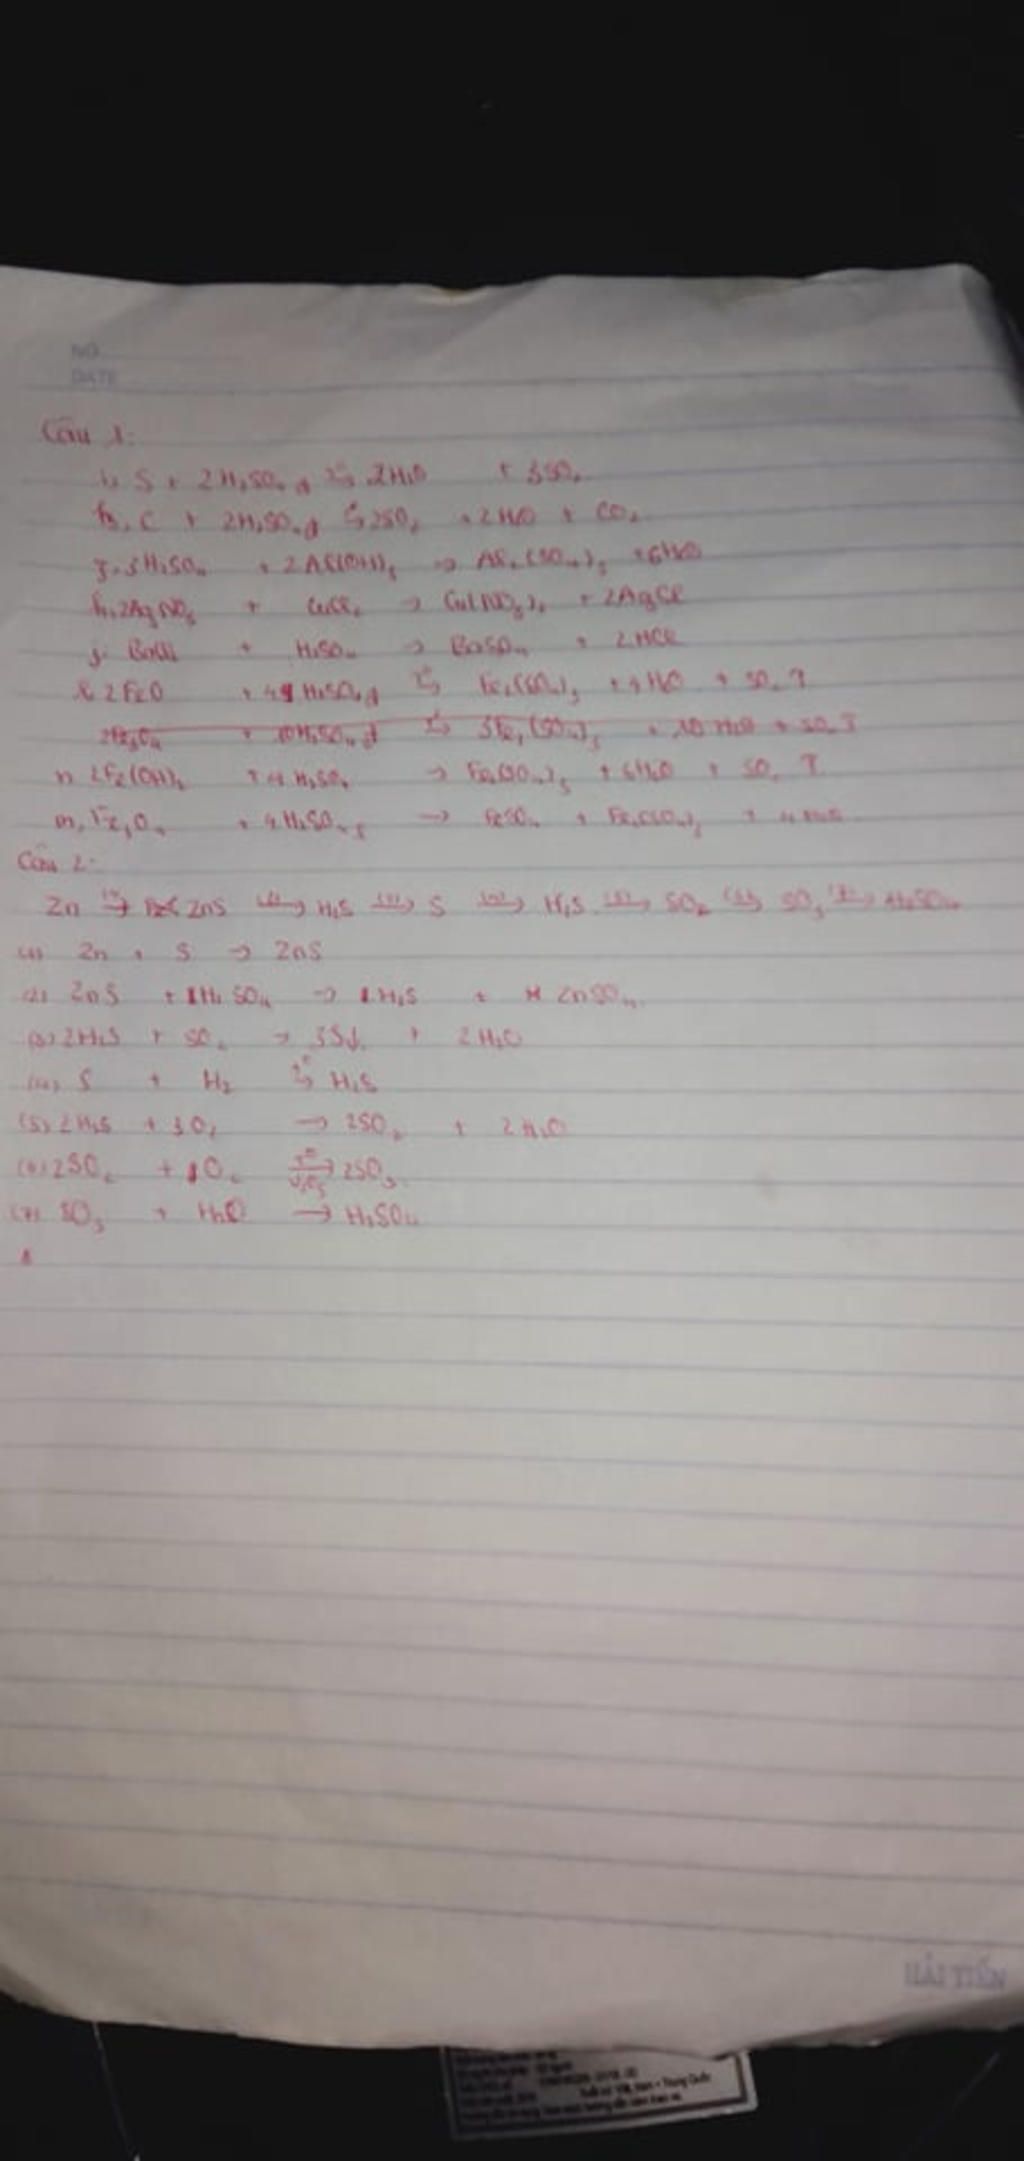 NO
DATE
Câu 1:
i, S + 2H₂SO₄ đ t°→ 2H₂O + 3SO₂
h, C + 2H₂SO₄ đ t°→ 2SO₂ + 2H₂O + CO₂
g, 3H₂SO₄ + 2Al(OH)₃ → Al₂(SO₄)₃ + 6H₂O
h, 2AgNO₃ + CuCl₂ → Cu(NO₃)₂ + 2AgCl
j. BaCl₂ + H₂SO₄ → BaSO₄ + 2HCl
2FeO + 4H₂SO₄ đ t°→ Fe₂(SO₄)₃ + 4H₂O + SO₂ ↑
2Fe₃O₄ + 10H₂SO₄ đ t°→ 3Fe₂(SO₄)₃ + 10H₂O + SO₂ ↑
n 2Fe(OH)₂ + 4H₂SO₄ → Fe₂(SO₄)₃ + 6H₂O + SO₂ ↑
m, Fe₃O₄ + 4H₂SO₄ → FeSO₄ + Fe₂(SO₄)₃ + 4H₂O
Câu 2:
Zn (1)→ ZnS (2)→ H₂S (3)→ S (4)→ H₂S (5)→ SO₂ (6)→ SO₃ (7)→ H₂SO₄
(1) Zn + S → ZnS
(2) ZnS + H₂SO₄ → H₂S + ZnSO₄
(3) 2H₂S + SO₂ → 3S↓ + 2H₂O
(4) S + H₂ t°→ H₂S
(5) 2H₂S + 3O₂ → 2SO₂ + 2H₂O
(6) 2SO₂ + 1O₂ t°→ V₂O₅ 2SO₃
(7) SO₃ + H₂O → H₂SO₄
HẢI TIẾN